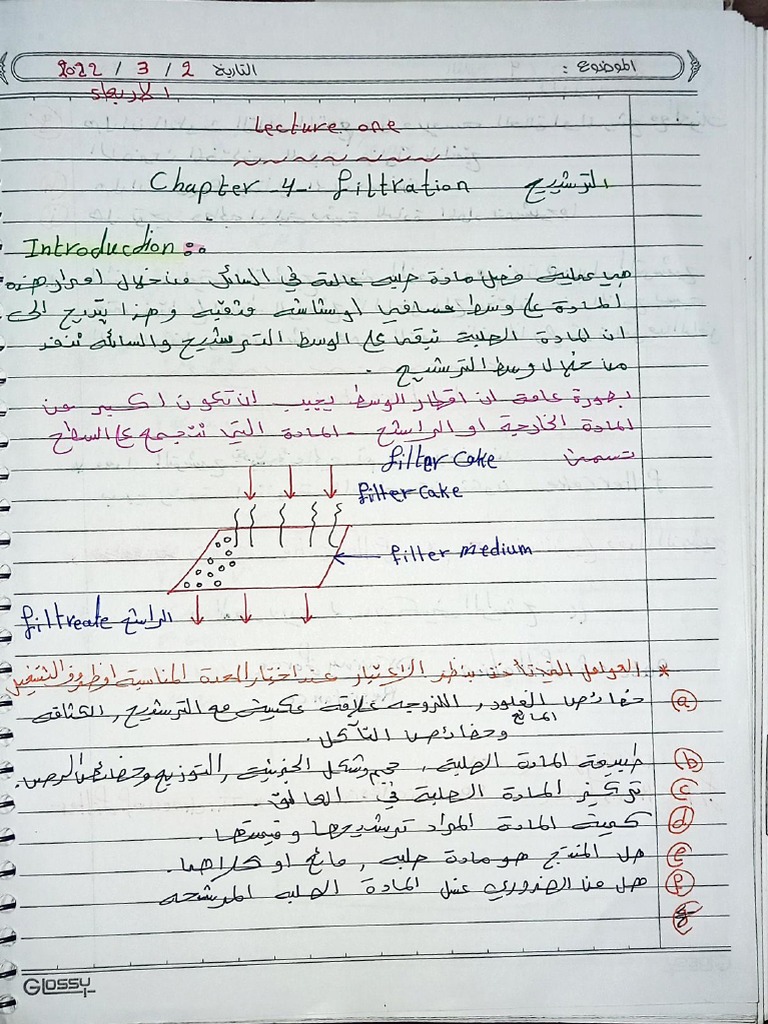 الموضوع :
التاريخ 2 / 3 / 2022
الاربعاء
Lecture one
Chapter 4- filtration الترشيح
Introducdion :
هي عملية فصل مادة صلبه عالقة في السائل من خلال امرار هذه
المادة على وسط مسامي او شاشه مثقبه وهذا يتيح الى
ان المادة الصلبة تبقى على الوسط الترشيح والسائل تنفذ
من خلال وسط الترشيح .
بصورة عامة ان اقطار الوسط يجب ان تكون اكبر من
المادة الخارجة او الراشح - المادة التي تتجمع على السطح
تسمى filter cake
filter cake
filter medium
filtreate الراشح
* العوامل التي تأخذ بنظر الاعتبار عند اختيار المعدة المناسبة او ظروف التشغيل
a خصائص الفلود , اللزوجه علاقة عكسية مع الترشيح , الكثافه
المائع
وخصائص التآكل .
b طبيعة المادة الصلبة , حجم وشكل الجزيئة , التوزيع وخصائص الرص .
c تركيز المادة الصلبة في العالق .
d كمية المادة المراد ترشيحها وقيمتها .
e هل المنتج هو مادة صلبه , مائع او كلاهما .
f هل من الضروري غسل المادة الصلبه المرشحه
GLOSSY